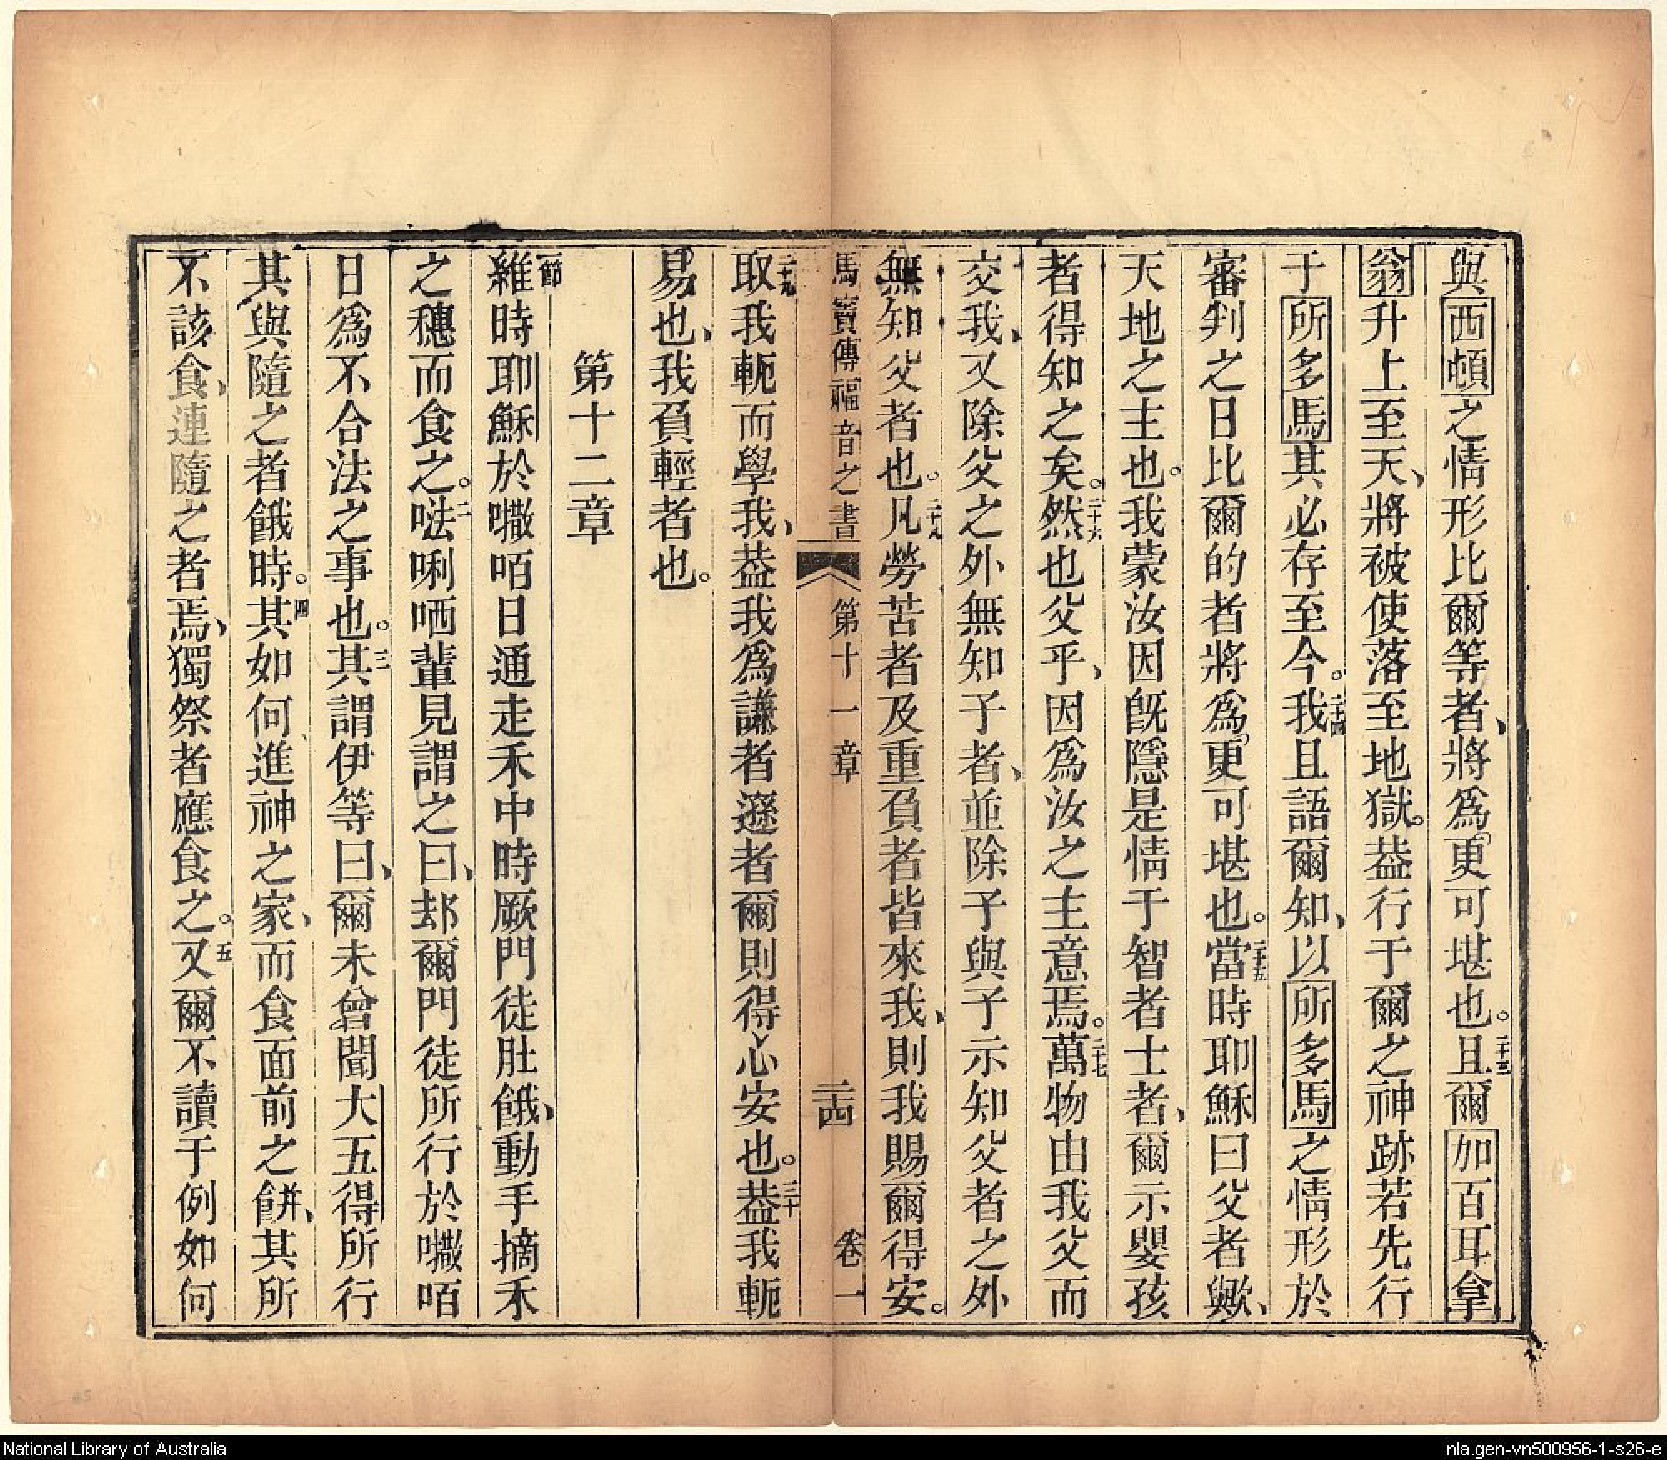 與西頓之情形比爾等者、將爲更可堪也。二十三且爾加百耳拿
翁升上至天、將被使落至地獄。葢行于爾之神跡若先行
于所多馬其必存至今。二十四我且語爾知、以所多馬之情形於
審判之日比爾的者將爲更可堪也。二十五當時耶穌曰父者歟、
天地之主也。我蒙汝因旣隱是情于智者士者、爾示嬰孩
者得知之矣。二十六然也父乎、因爲汝之主意焉。二十七萬物由我父而
交我、又除父之外無知子者、並除子與子示知父者之外
無知父者也。二十八凡勞苦者及重負者皆來我、則我賜爾得安。
馬竇傳福音之書 第十一章 二十四 卷一
二十九取我軛而學我、葢我爲謙者遜者爾則得心安也。三十葢我軛
易也、我負輕者也。
第十二章
一節維時耶穌於𡃤咟日通走禾中時厥門徒肚餓、動手摘禾
之穗而食之。二㗝唎哂輩見謂之曰、却爾門徒所行於𡃤咟
日爲不合法之事也。三其謂伊等曰、爾未曾聞大五得所行
其與隨之者餓時。四其如何進神之家、而食面前之餅、其所
不該食、連隨之者焉、獨祭者應食之。五又爾不讀于例如何
National Library of Australia
nla.gen-vn500956-1-s26-e